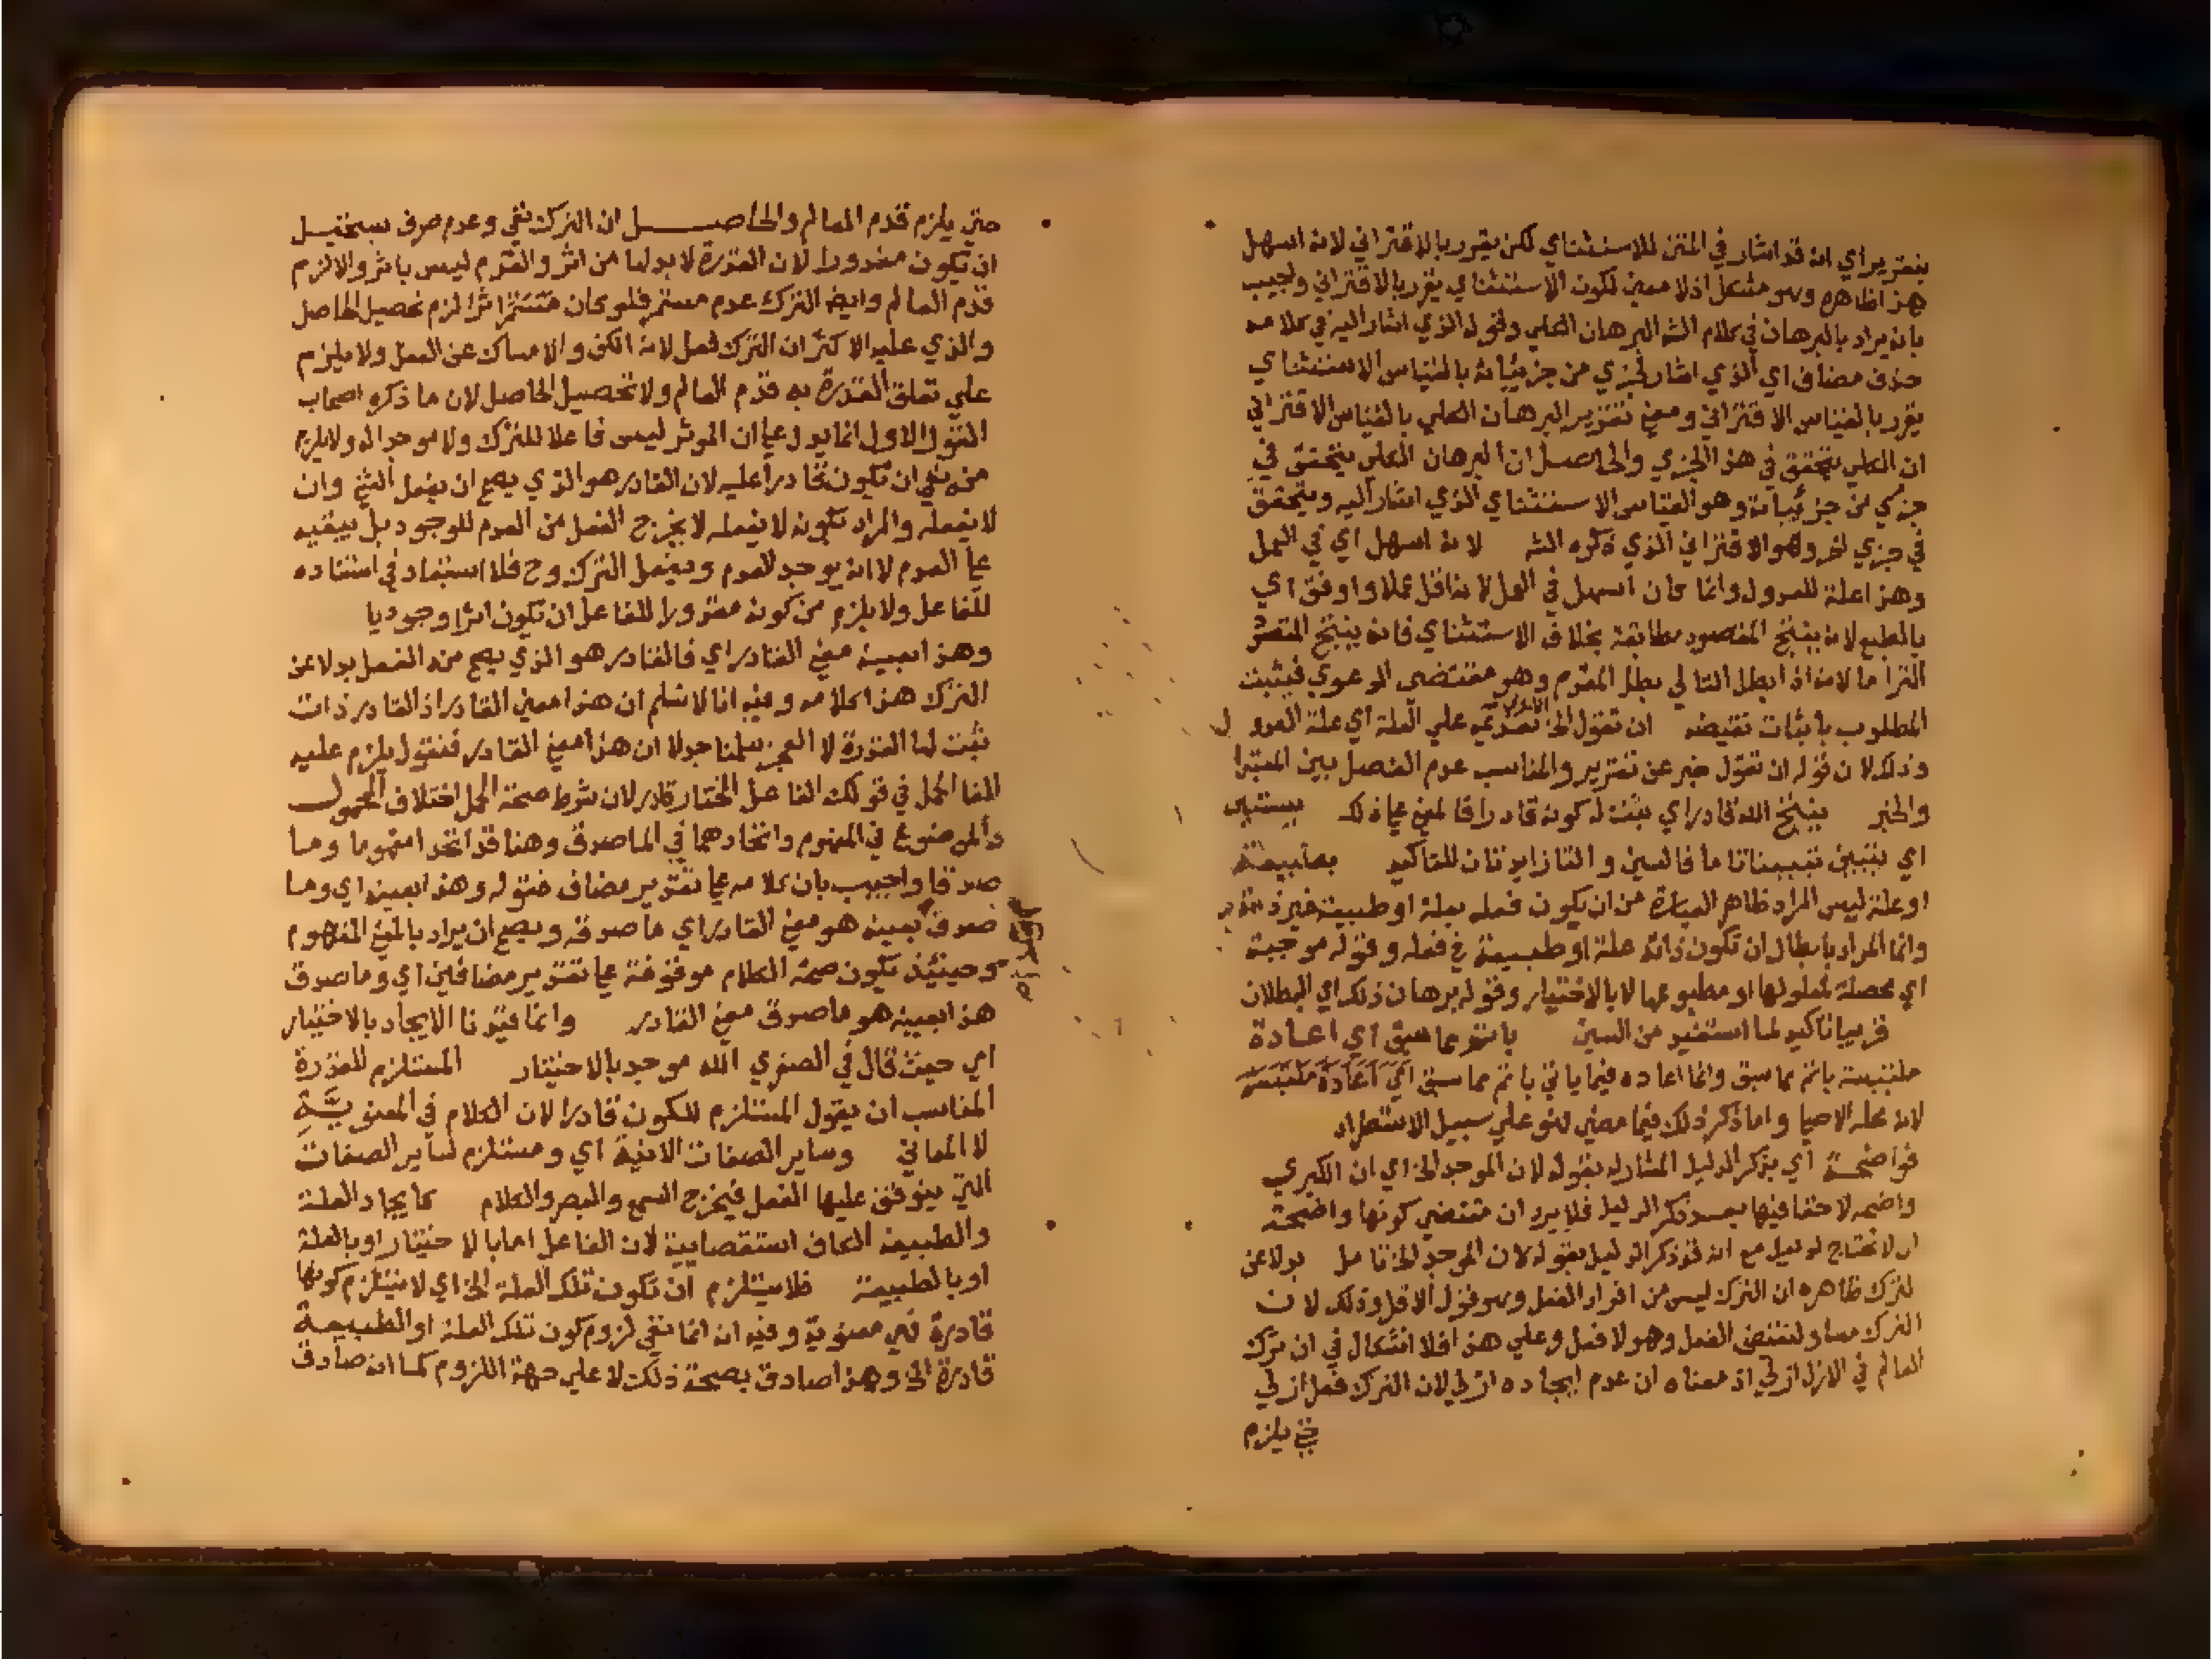 بتقرير اي انه قد اشار في المتن للاستثناي لكن يقرر بالاقتراني لانه اسهل
هذا ظاهره وهو مشكل اذ لا معني لكون الاستثناي يقرر بالاقتراني واجيب
بانه يراد بالبرهان في كلام الشه البرهان الكلي وقوله الذي اشار اليه في كلامه
حذف مضاف اي الذي اشار لجزي من جزئياته بالقياس الاستثناي
يقرر بالقياس الاقتراني ومعني تقرير البرهان الكلي بالقياس الاقتراني
ان الكلي يتحقق في هذا الجزي والحاصل ان البرهان الكلي يتحقق في
جزي من جزئياته وهو القياس الاستثناي الذي اشار اليه ويتحقق
في جزي اخر وهو الاقتراني الذي ذكره الشه لانه اسهل اي في العمل
وهذا علة للعدول وانما كان اسهل في العمل لانه اقل عملا واوفق اي
بالطبع لانه ينتج المقصود مطابقة بخلاف الاستثناي فانه ينتج المقصود
التزاما لانه اذا بطل التالي بطل المقدم وهو مقتضي الدعوي فيثبت
المطلوب باثبات نقيضه ان تقول الخ تقديمه علي العلة اي علة العدول
وذلك لان قوله ان تقول خبر عن تقرير والمناسب عدم الفصل بين المبتدا
والخبر ينتج الله قادر اي يثبت له كونه قادرا فالمعني علي ذلك يستبين
اي يتبين تبيينا تاما فالسين والتا زايدتان للتاكيد بطبيعة
او علة ليس المراد ظاهر العبارة من ان يكون فعله بعلة او طبيعة غير ذاته
وانما المراد بابطال ان تكون ذاته علة او طبيعة في فعله وقوله موجبة
اي محصلة لمعلولها او مطبوعها لا بالاختيار وقوله برهان ذلك اي البطلان
قريبا تاكيد لما استفيد من السين باتم مما سبق اي اعادة
ملتبسة باتم مما سبق وانما اعاده فيما ياتي باتم مما سبق اي اعادة ملتبسة
لانه محله الاصلي واما ذكر ذلك فيما مضي فهو علي سبيل الاستطراد
فواضحة اي بذكر الدليل المشار له بقوله لان الموجد الخ اي ان الكبري
واضحه لا خفا فيها بعد ذكر الدليل فلا يرد ان مقتضي كونها واضحة
ان لا تحتاج لدليل مع انه قد ذكر الدليل بقوله لان الموجد الخ تامل بدلا عن
الترك ظاهره ان الترك ليس من افراد الفعل وهو قول الاقل وذلك لان
الترك مساو لنقيض الفعل وهو لا فعل وعلي هذا فلا اشكال في ان ترك
العالم في الازل ازلي اذ معناه ان عدم ايجاده ازلي لان الترك فعل ازلي
حتي يلزم
حتي يلزم قدم العالم والحاصل ان الترك نفي وعدم صرف يستحيل
ان يكون مقدورا لان القدرة لا بد لها من اثر والعدم ليس باثر والا لزم
قدم العالم وايضا الترك عدم مستمر فلو كان اثرا لزم تحصيل الحاصل
والذي عليه الاكثر ان الترك فعل لانه الكف والامساك عن الفعل ولا يلزم
علي تعلق القدرة به قدم العالم ولا تحصيل الحاصل لان ما ذكره اصحاب
القول الاول انما يدل علي ان الموثر ليس فاعلا للترك ولا موجدا له ولا يلزم
منه نفي ان يكون قادرا عليه لان القادر هو الذي يصح ان يفعل الشي وان
لا يفعله والمراد بكونه لا يفعله لا يخرج الفعل من العدم للوجود بل يبقيه
علي العدم لا انه يوجد العدم ويفعل الترك وح فلا استبعاد في استناده
للفاعل ولا يلزم من كونه مقدورا للفاعل ان يكون اثرا وجوديا
وهذا بعينه معني القادر اي فالقادر هو الذي يصح منه الفعل بدلا عن
الترك هذا كلامه وفيه انا لا نسلم ان هذا معني القادر اذ القادر ذات
ثبت لها القدرة لا العجز سلمنا جدلا ان هذا معني القادر فنقول يلزم عليه
الفا الحمل في قولك الفاعل المختار قادر لان شرط صحة الحمل اختلاف المحمول
والموضوع في المفهوم واتحادهما في الماصدق وهنا قد اتحدا مفهوما وما
صدقا واجيب بان كلامه علي تقدير مضاف فقوله وهذا بعينه اي وما
صدق بعينه هو معني القادر اي ما صدقه ويصح ان يراد بالمعني المفهوم
وحينئذ تكون صحة الكلام موقوفة علي تقدير مضافين اي وما صدق
هذا بعينه هو ما صدق معني القادر وانما قيدنا الايجاد بالاختيار
اي حيث قال في الصغري الله موجد بالاختيار المستلزم للقدرة
المناسب ان يقول المستلزم للكون قادرا لان الكلام في المعنوية
لا المعاني وساير الصفات الاتية اي ومستلزم لساير الصفات
التي يتوقف عليها الفعل فيخرج السمع والبصر والكلام كايجاد العلة
والطبيعة الكاف استقصايية لان الفاعل اما بالاختيار او بالعلة
او بالطبيعة فلا يستلزم ان تكون تلك العلة الخ اي لا يستلزم كونها
قادرة فهي معنوية وفيه ان انما نفي لزوم كون تلك العلة او الطبيعة
قادرة الخ وهذا صادق بصحة ذلك لا علي جهة اللزوم كما انه صادق